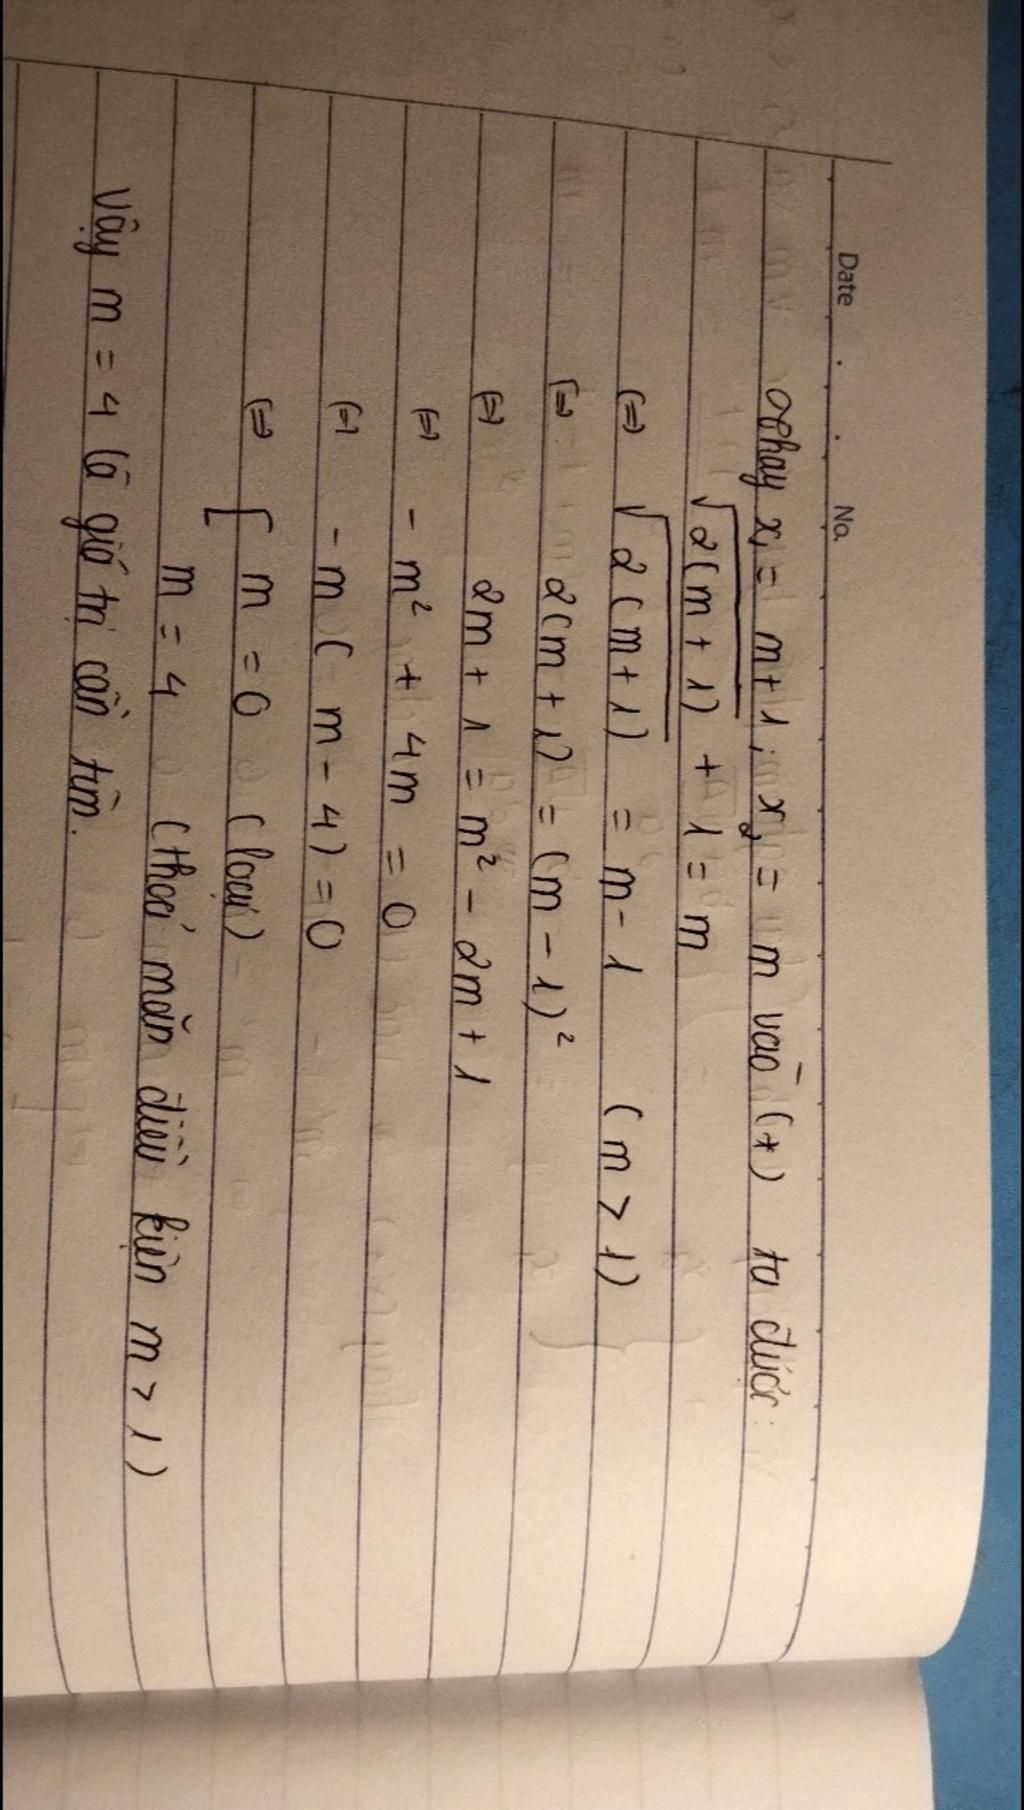 Date . . No.
Thay x₁ = m+1; x₂ = m vào (*) ta được:
√2(m+1) + 1 = m
(=) √2(m+1) = m-1 (m > 1)
(=) 2(m+1) = (m-1)²
(=) 2m + 1 = m² - 2m + 1
(=) - m² + 4m = 0
(=) - m ( m - 4) = 0
(=) [ m = 0 (loại)
m = 4 (thoả mãn điều kiện m > 1)
Vậy m = 4 là giá trị cần tìm.